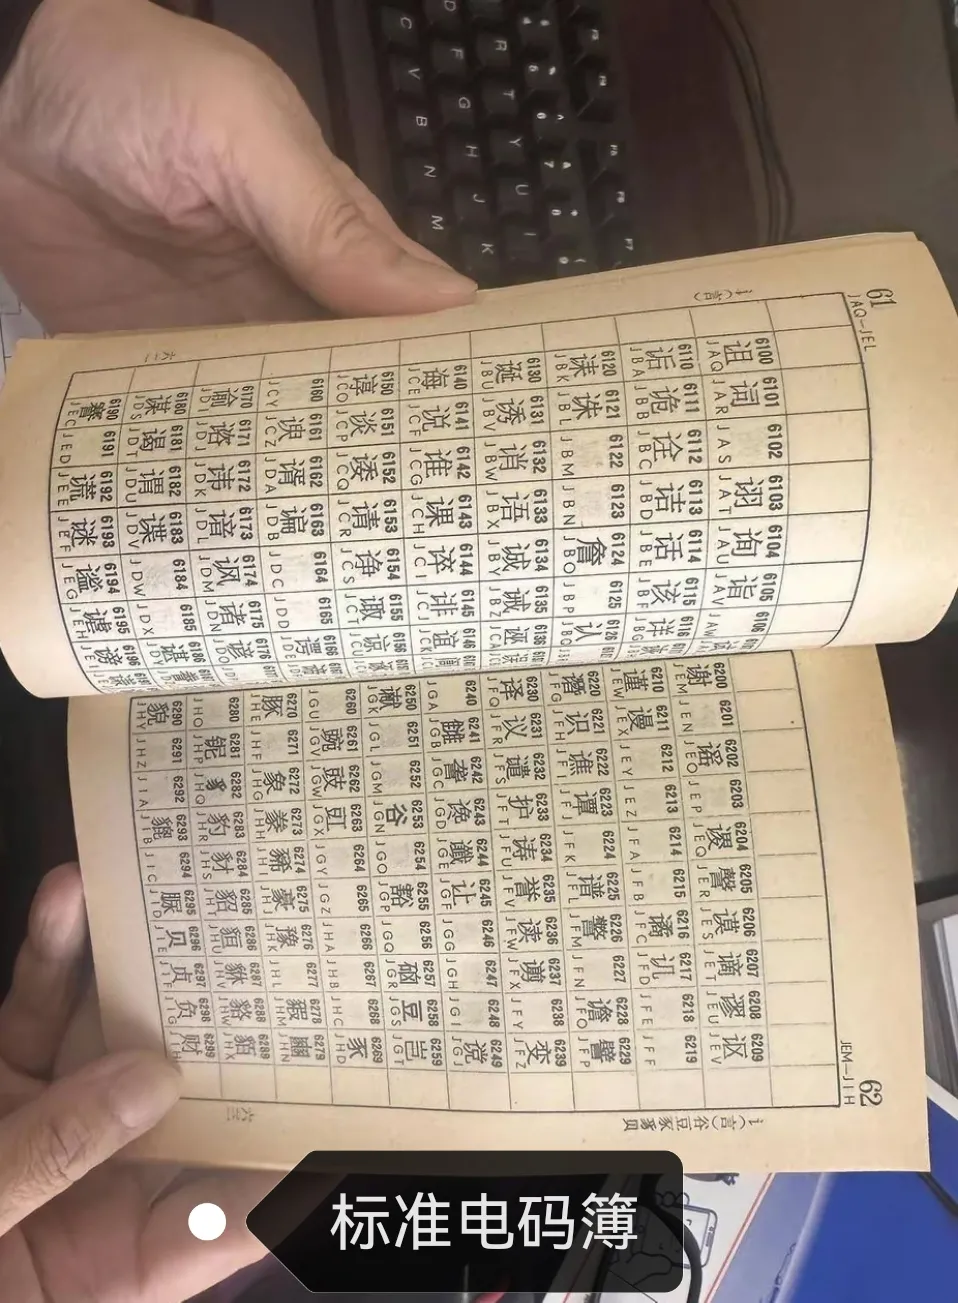 61
JAQ—JEL
讠(言)
6100 6101 6102 6103 6104 6105 6106
诅 词 诩 询 诣 试
JAQ JAR JAS JAT JAU JAV JAW
6110 6111 6112 6113 6114 6115 6116
诟 诡 诠 诘 话 该 详
JBA JBB JBC JBD JBE JBF JBG
6120 6121 6122 6123 6124 6125 6126
诔 诛 詹 认
JBK JBL JBM JBN JBO JBP JBQ
6130 6131 6132 6133 6134 6135 6136
诞 诱 诮 语 诚 诫 诬
JBU JBV JBW JBX JBY JBZ JCA
6140 6141 6142 6143 6144 6145 6146
诲 说 谁 课 谇 诽 谊
JCE JCF JCG JCH JCI JCJ JCK
6150 6151 6152 6153 6154 6155 6156
谆 谈 诿 请 诤 诹 谅
JCO JCP JCQ JCR JCS JCT
6160 6161 6162 6163 6164 6165 6166
谀 谞 谝 谔
JCY JCZ JDA JDB JDC JDD JDE
6170 6171 6172 6173 6174 6175 6176
谕 谘 讳 谙 讽 诸 谚
JDI JDJ JDK JDL JDM JDN JDO
6180 6181 6182 6183 6184 6185 6186
谋 谒 谓 谍 谌
JDS JDT JDU JDV JDW JDX JDY
6190 6191 6192 6193 6194 6195 6196
謇 谎 谜 谥 谑 谤
JEC JED JEE JEF JEG JEH JEI
六二
62
JEM—JIH
讠(言)谷豆豕豸贝
6200 6201 6202 6203 6204 6205 6206 6207 6208 6209
谢 谣 谡 謦 谟 谪 谬 讴
JEM JEN JEO JEP JEQ JER JES JET JEU JEV
6210 6211 6212 6213 6214 6215 6216 6217 6218 6219
谨 谩 谲 讥
JEW JEX JEY JEZ JFA JFB JFC JFD JFE JFF
6220 6221 6222 6223 6224 6225 6226 6227 6228 6229
识 谯 谭 谱 警 谵 譬
JFG JFH JFI JFJ JFK JFL JFM JFN JFO JFP
6230 6231 6232 6233 6234 6235 6236 6237 6238 6239
译 议 谴 护 诪 誉 读 谫 变
JFQ JFR JFS JFT JFU JFV JFW JFX JFY JFZ
6240 6241 6242 6243 6244 6245 6246 6247 6248 6249
雠 詟 谗 谶 让 谠
JGA JGB JGC JGD JGE JGF JGG JGH JGI JGJ
6250 6251 6252 6253 6254 6255 6256 6257 6258 6259
谳 谷 豁 豆 岂
JGK JGL JGM JGN JGO JGP JGQ JGR JGS JGT
6260 6261 6262 6263 6264 6265 6266 6267 6268 6269
豌 豉 豇 豕
JGU JGV JGW JGX JGY JGZ JHA JHB JHC JHD
6270 6271 6272 6273 6274 6275 6276 6277 6278 6279
豚 象 豢 豨 豪 豫 豭 豳
JHE JHF JHG JHH JHI JHJ JHK JHL JHM JHN
6280 6281 6282 6283 6284 6285 6286 6287 6288 6289
豸 豹 豺 貂 貆 貅 貉 貊
JHO JHP JHQ JHR JHS JHT JHU JHV JHW JHX
6290 6291 6292 6293 6294 6295 6296 6297 6298 6299
貌 貔 贝 贞 负 财
JHY JHZ JIA JIB JIC JID JIE JIF JIG JIH
六三
C V B N M
F G H J K
R T Y U I
标准电码簿